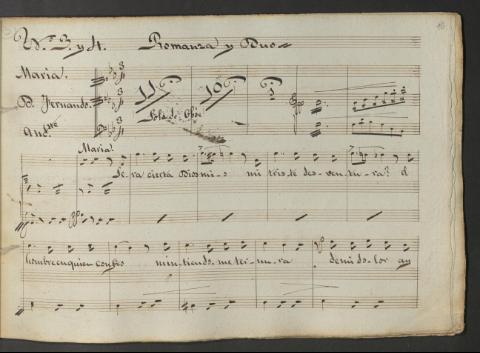 Nos. 3. y 4. Romanza y Duo
Maria.
D. Fernando.
Andno
11 10
Solo de Oboe
Maria.
Sera cierta Dios mi-o mi tris-te des-ven-tu-ra? el
hombre enquien confio min-tiendo-me ter-nu-ra demi do-lor